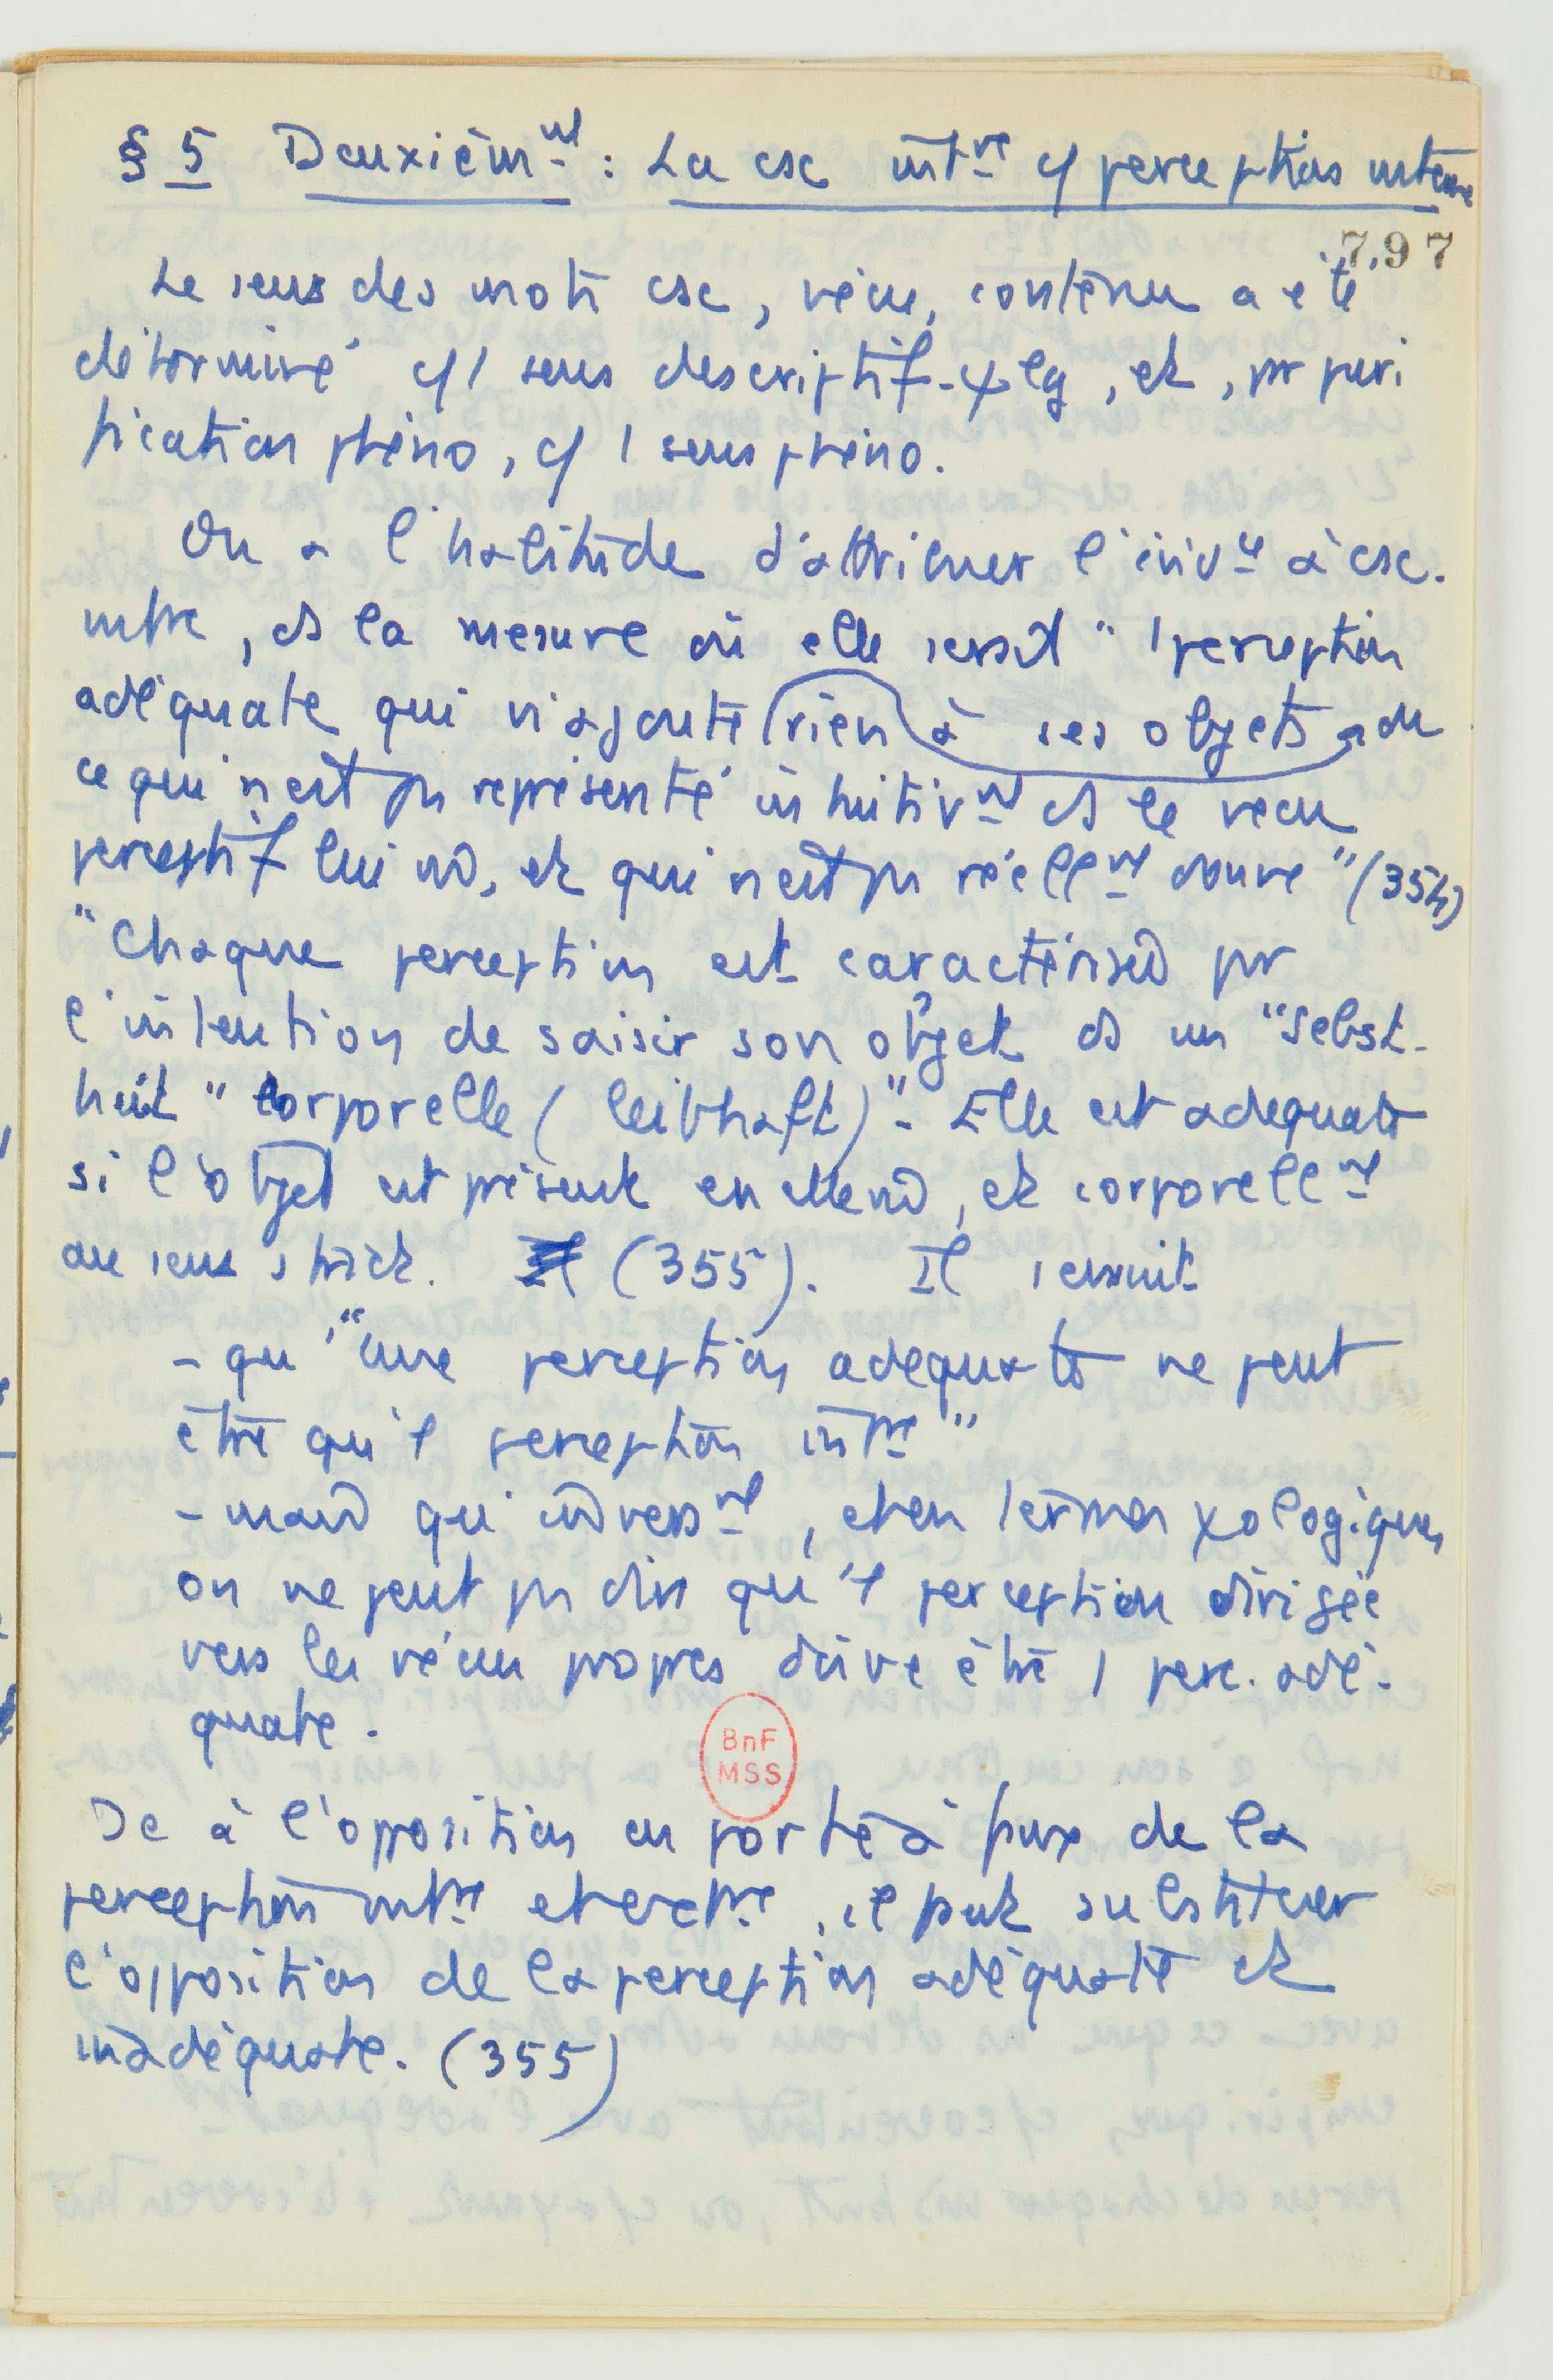 § 5 Deuxièmt : La csc intre cf perception interne
797
Le sens des mots csc, vécu, contenu a été
déterminé cf 1 sens descriptif-ψlg, et, par puri
fication phéno, cf 1 sens phéno.
On a l'habitude d'attribuer l'évidce à csc.
intre, ds la mesure où elle serait "1 perception
adéquate qui n'ajoute rien à ses objets de
ce qui n'est pas représenté intuitivt ds le vécu
perceptif lui md, et qui n'est pas réellt donné" (354)
"Chaque perception est caractérisée par
l'intention de saisir son objet ds un "Selbst-
heit" corporelle (leibhaft)". Elle est adequate
si l'objet est présent en elle md, et corporellt
au sens strict. Il (355). Il s'ensuit
- qu'"une perception adequate ne peut
être qu'1 perception intre"
- mais qu'inverst, et en termes ψologiques,
on ne peut pas dire qu'1 perception dirigée
vers les vécus propres doive être 1 perc. adé-
quate.
BnF
MSS
Dc à l'opposition en porte à faux de la
perception intre et extre, il faut substituer
l'opposition de la perception adéquate et
inadéquate. (355)